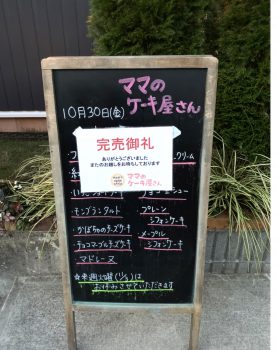 ママの
ケーキ屋さん
10月30日(金)
完売御礼
ありがとうございました
またのお越しをお待ちしております
ママの
ケーキ屋さん
クリーム
モンブランタルト
プレーン
シフォンケーキ
かぼちゃのチーズケーキ
メープル
シフォンケーキ
チョコマーブルチーズケーキ
マドレーヌ
お休みさせていただきます